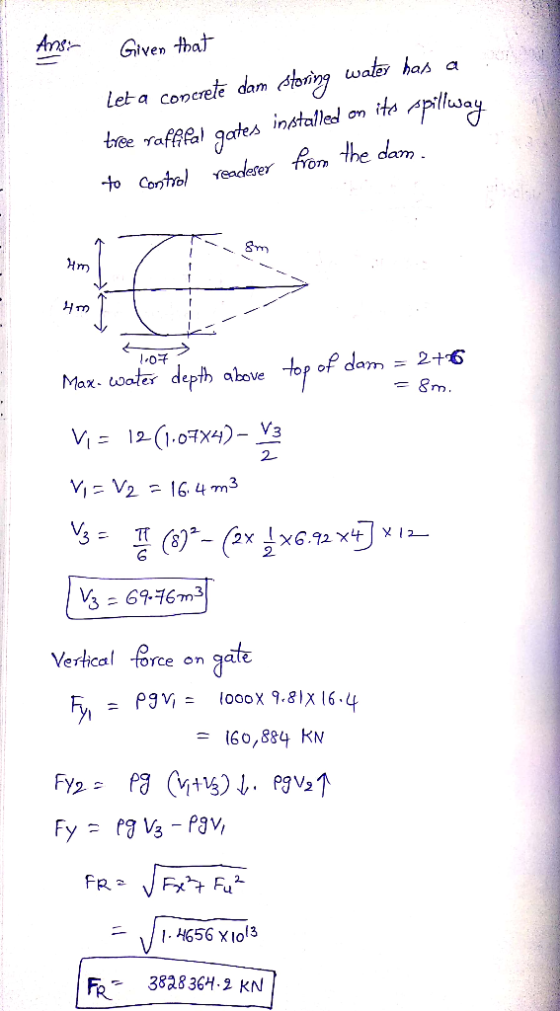 Ans:- Given that
Let a concrete dam storing water has a
tree raffifal gates installed on its spillway
to control readeser from the dam.
8m
4m
4m
1.07
Max. water depth above top of dam = 2+6
= 8m.
V1 = 12(1.07×4) - V3/2
V1 = V2 = 16.4 m³
V3 = π/6 (8)² - (2× 1/2 ×6.92 ×4] ×12
V3 = 69.76m³
Vertical force on gate
Fy1 = ρgV1 = 1000× 9.81× 16.4
= 160,884 KN
Fy2 = ρg (V1+V3) ↓. ρgV2↑
Fy = ρg V3 - ρgV1
FR = √Fx²+ Fu²
= √1.4656 ×10¹³
FR = 3828364.2 KN